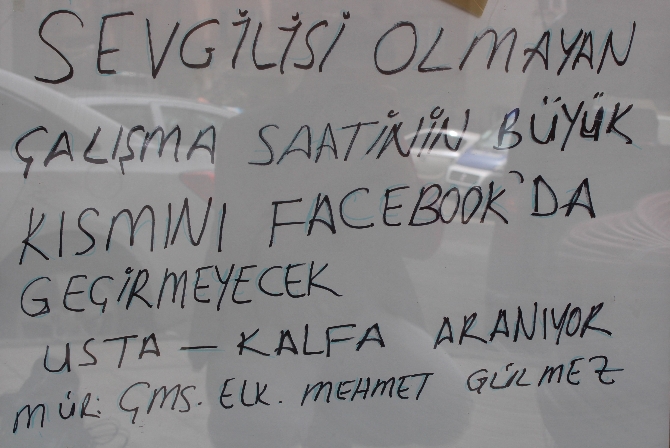 SEVGİLİSİ OLMAYAN
ÇALIŞMA SAATİNİN BÜYÜK
KISMINI FACEBOOK'DA
GEÇİRMEYECEK
USTA - KALFA ARANIYOR
MÜR: ÇMS. ELK. MEHMET GÜLMEZ